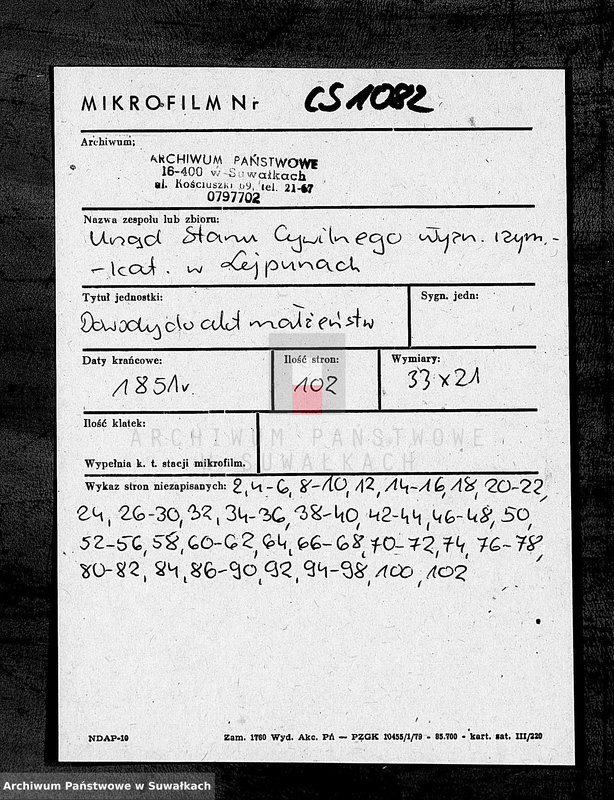 MIKROFILM Nr CS1082
Archiwum;
ARCHIWUM PAŃSTWOWE
16-400 w Suwałkach
ul. Kościuszki 69, tel. 21-67
0797702
Nazwa zespołu lub zbioru:
Urząd Stanu Cywilnego wyzn. rzym.-
-kat. w Lejpunach
Tytuł jednostki:
Sygn. jedn:
Dowody do akt małżeństw
Daty krańcowe:
Ilość stron:
Wymiary:
1851r.
102
33x21
Ilość klatek:
ARCHIWUM PAŃSTWOWE
W SUWAŁKACH
Wypełnia k. t. stacji mikrofilm.
Wykaz stron niezapisanych: 2,4-6, 8-10, 12, 14-16, 18, 20-22,
24, 26-30, 32, 34-36, 38-40, 42-44, 46-48, 50,
52-56, 58, 60-62, 64, 66-68, 70-72, 74, 76-78,
80-82, 84, 86-90, 92, 94-98, 100, 102
NDAP-10
Zam. 1760 Wyd. Akc. Pń — PZGK 10455/1/79 - 85.700 - kart. sat. III/220
Archiwum Państwowe w Suwałkach